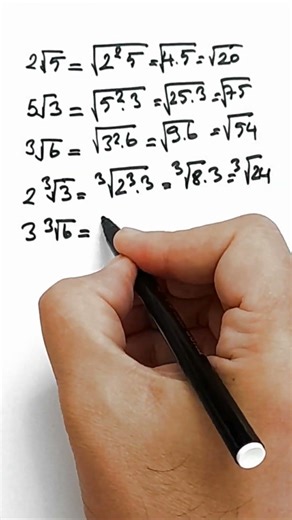 2√5 = √2² 5 = √4.5 = √20
5√3 = √5².3 = √25.3 = √75
3√6 = √3².6 = √9.6 = √54
2 ³√3 = ³√2³.3 = ³√8.3 = ³√24
3 ³√6 =